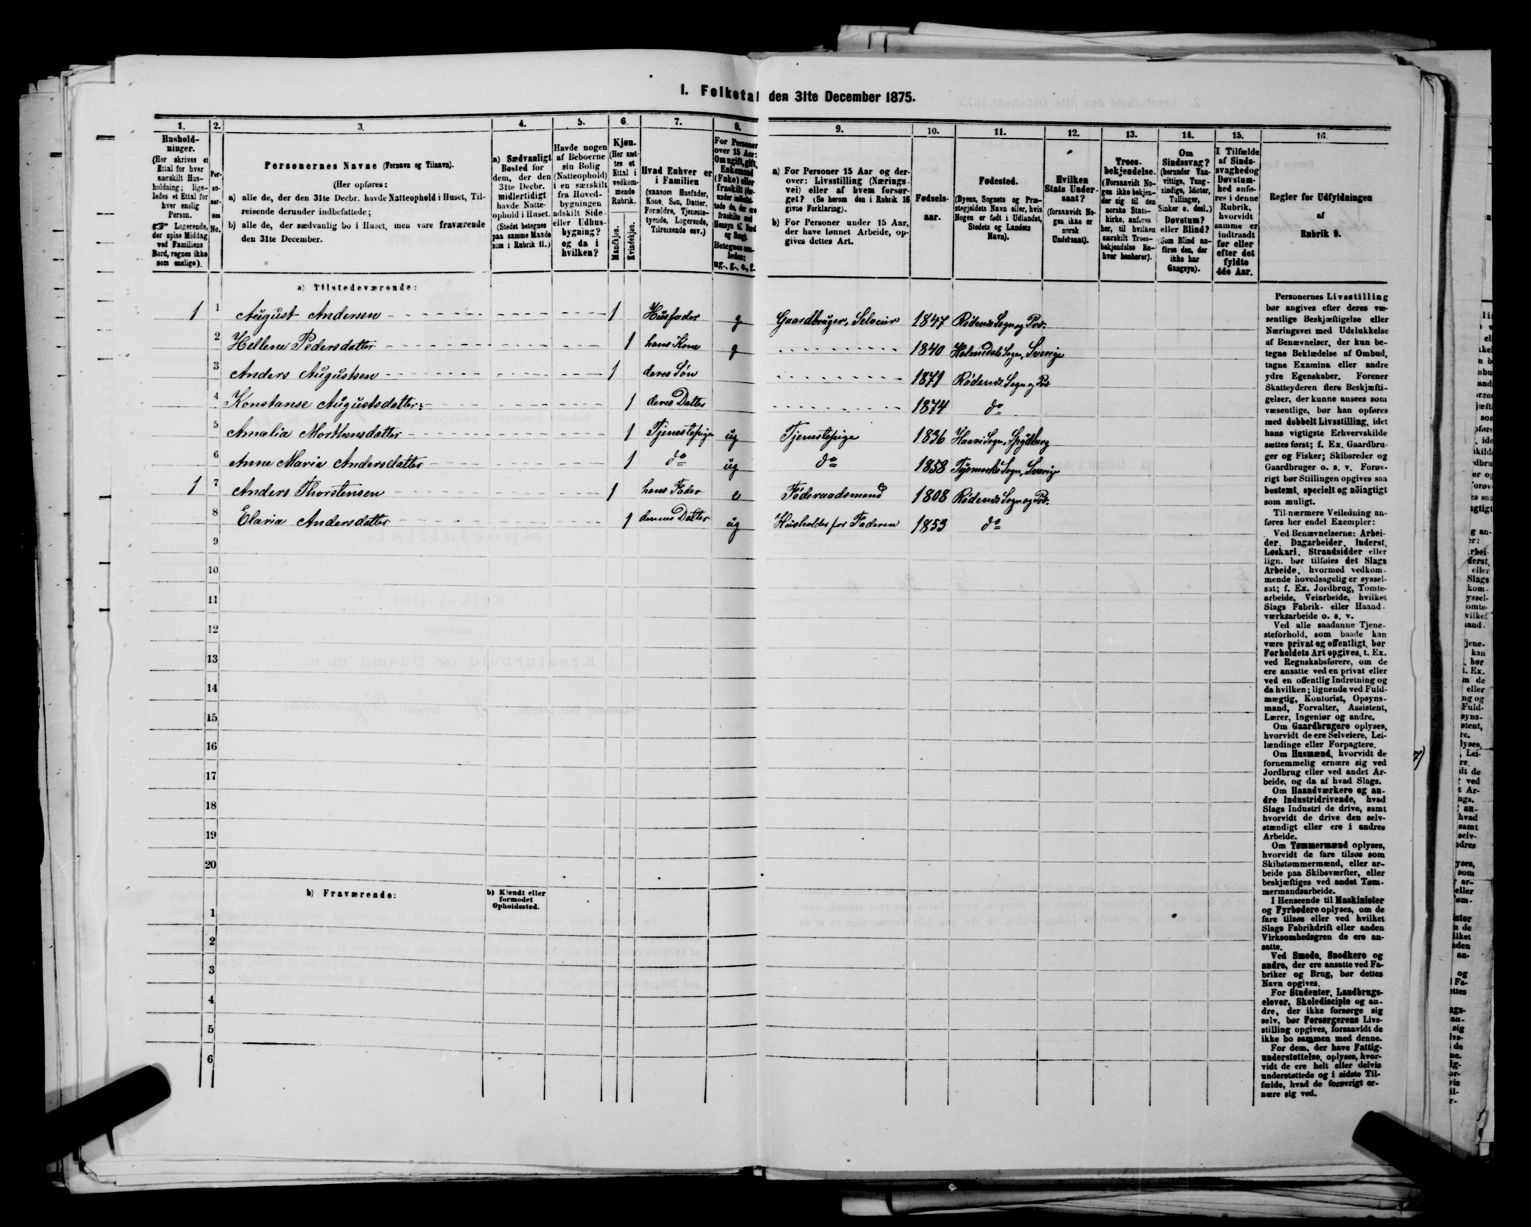 1. Folketal den 31te December 1875.
1. 2. 3. 4. 5. 6. 7. 8. 9. 10. 11. 12. 13. 14. 15. 16.
Hushold-
ninger.
(Her skrives et
Ettal for hver
særskilt Hus-
holdning; lige-
ledes et Ettal for
hver enslig
Person.
☞ Logerende,
der spise Middag
ved Familiens
Bord, regnes ikke
som enslige).
Per-
so-
ner-
nes
No.
Personernes Navne (Fornavn og Tilnavn).
(Her opføres:
a) alle de, der den 31te Decbr. havde Natteophold i Huset, Til-
reisende derunder indbefattede;
b) alle de, der sædvanlig bo i Huset, men vare fraværende
den 31te December.
a) Sædvanligt
Bosted for
dem, der den
31te Decbr.
midlertidigt
havde Natte-
ophold i Huset.
(Stedet betegnes
paa samme Maade
som i Rubrik 11.)
Havde nogen
af Beboerne
sin Bolig
(Natteophold)
i en særskilt
fra Hoved-
bygningen
adskilt Side-
eller Udhus-
bygning?
og da i
hvilken?
Kjøn.
(Her sæt-
tes et
Ettal i
vedkom-
mende
Rubrik.
Mandkjøn.
Kvindekjøn.
Hvad Enhver er
i Familien
(saasom Husfader,
Kone, Søn, Datter,
Forældre, Tjeneste-
tyende, Logerende,
Tilreisende osv.).
For Personer
over 15 Aar:
Om ugift, gift,
Enkemand
(Enke) eller
fraskilt
Betegnes saa-
ledes:
ug., g., e., f.
a) For Personer 15 Aar og der-
over: Livsstilling (Nærings-
vei) eller af hvem forsør-
get? (Se herom den i Rubrik 16
givne Forklaring).
b) For Personer under 15 Aar,
der have lønnet Arbeide, op-
gives dettes Art.
Fødsels-
aar.
Fødested.
(Byens, Sognets og Præ-
stegjeldets Navn eller, hvis
Nogen er født i Udlandet,
Stedets og Landets
Navn).
Hvilken
Stats Under-
saat?
(forsaavidt No-
gen ikke er
norsk
Undersaat).
Troes-
bekjendelse.
(Forsaavidt No-
gen ikke bekjen-
der sig til den
norske Stats-
kirke, anføres
her, til hvilken
særskilt Troes-
bekjendelse En-
hver henhører).
Om
Sindssvag?
(herunder Van-
vittige, Tung-
sindige, Idioter,
Tullinger,
Sinker o. desl.)
Døvstum?
eller Blind?
(Som Blind an-
føres den, der
ikke har
Gangsyn).
I Tilfælde
af Sinds-
svaghed og
Døvstum-
hed anfø-
res i denne
Rubrik,
hvorvidt
samme er
indtraadt
før eller
efter det
fyldte
4de Aar.
Regler for Udfyldningen
af
Rubrik 9.
a) Tilstedeværende:
1 1 August Andersen 1 Husfader g Gaardbruger, Selveier 1847 Rødenes Sogn og Pst.
2 Hellene Pedersdatter 1 hans Kone g 1840 Holmedals Sogn, Sverige
3 Anders Augustsen 1 deres Søn 1871 Rødenes Sogn og Pst.
4 Konstanse Augustsdatter 1 deres Datter 1874 do
5 Amalia Morthensdatter 1 Tjenestepige ug Tjenestepige 1836 Haavi Sogn, Spydberg
6 Anne Maria Andersdatter 1 do ug do 1858 Sogn, Sverige
1 7 Anders Thorstensen 1 hans Fader e Føderaadsmand 1808 Rødenes Sogn og Pst.
8 Elaria Andersdatter 1 dennes Datter ug Husholder for Faderen 1853 do
9
10
11
12
13
14
15
16
17
18
19
20
b) Fraværende:
b) Kjendt eller
formodet
Opholdssted.
1
2
3
4
5
6
Personernes Livsstilling
bør angives efter deres væ-
sentlige Beskjæftigelse eller
Næringsvei med Udelukkelse
af Benævnelser, der kun be-
tegne Beklædelse af Ombud,
tagne Examina eller andre
ydre Egenskaber. Forener
Skatteyderen flere Beskjæfti-
gelser, der kunne ansees som
væsentlige, bør han opføres
med dobbelt Livsstilling, idet
hans vigtigste Erhvervskilde
sættes først; f. Ex. Gaardbru-
ger og Fisker; Skibsreder og
Gaardbruger o. s. v. Forøv-
rigt bør Stillingen opgives saa
bestemt, specielt og nöiagtigt
som muligt.
Til nærmere Veiledning an-
føres her endel Exempler:
Ved Benævnelserne: Arbei-
der, Dagarbeider, Inderst,
Løskarl, Strandsidder eller
lign. bør tilføies det Slags
Arbeide, hvormed vedkom-
mende hovedsagelig er syssel-
sat; f. Ex. Jordbrug, Tomte-
arbeide, Veiarbeide, hvilket
Slags Fabrik- eller Haand-
værksarbeide o. s. v.
Ved alle saadanne Tjene-
steforhold, som baade kan
være privat og offentligt, bør
Forholdets Art opgives, t. Ex.
ved Regnskabsførere, om de
ere ansatte ved en privat eller
ved en offentlig Indretning og
da hvilken; lignende ved Fuld-
mægtig, Kontorist, Opsyns-
mand, Forvalter, Assistent,
Lærer, Ingeniør og andre.
Om Gaardbrugere oplyses,
hvorvidt de ere Selveiere, Lei-
lændinge eller Forpagtere.
Om Husmænd, hvorvidt de
fornemmelig ernære sig ved
Jordbrug eller ved andet Ar-
beide, og da af hvad Slags.
Om Haandværkere og an-
dre Industridrivende, hvad
Slags Industri de drive, samt
hvorvidt de drive den selv-
stændigt eller ere i andres
Arbeide.
Om Tømmermænd oplyses,
hvorvidt de fare tilsøs som
Skibstømmermænd, eller ar-
beide paa Skibsværfter, eller
beskjæftiges ved andet Tøm-
mermandsarbeide.
I Henseende til Maskinister
og Fyrbødere oplyses, om de
fare tilsøs eller ved hvilket
Slags Fabrikdrift eller anden
Virksomhedsgren de ere an-
satte.
Ved Smede, Snedkere og
andre, der ere ansatte ved Fa-
briker og Brug, bør dettes
Navn opgives.
For Studenter, Landbrugs-
elever, Skoledisciple og an-
dre, der ikke forsørge sig
selv, bør Forsørgerens Livs-
stilling opgives, forsaavidt de
ikke bo sammen med denne.
For dem, der have Fattig-
understøttelse, oplyses, hvor-
vidt de ere helt eller delvis
understøttede og i sidste Til-
fælde, hvad de forøvrigt er-
nære sig ved.